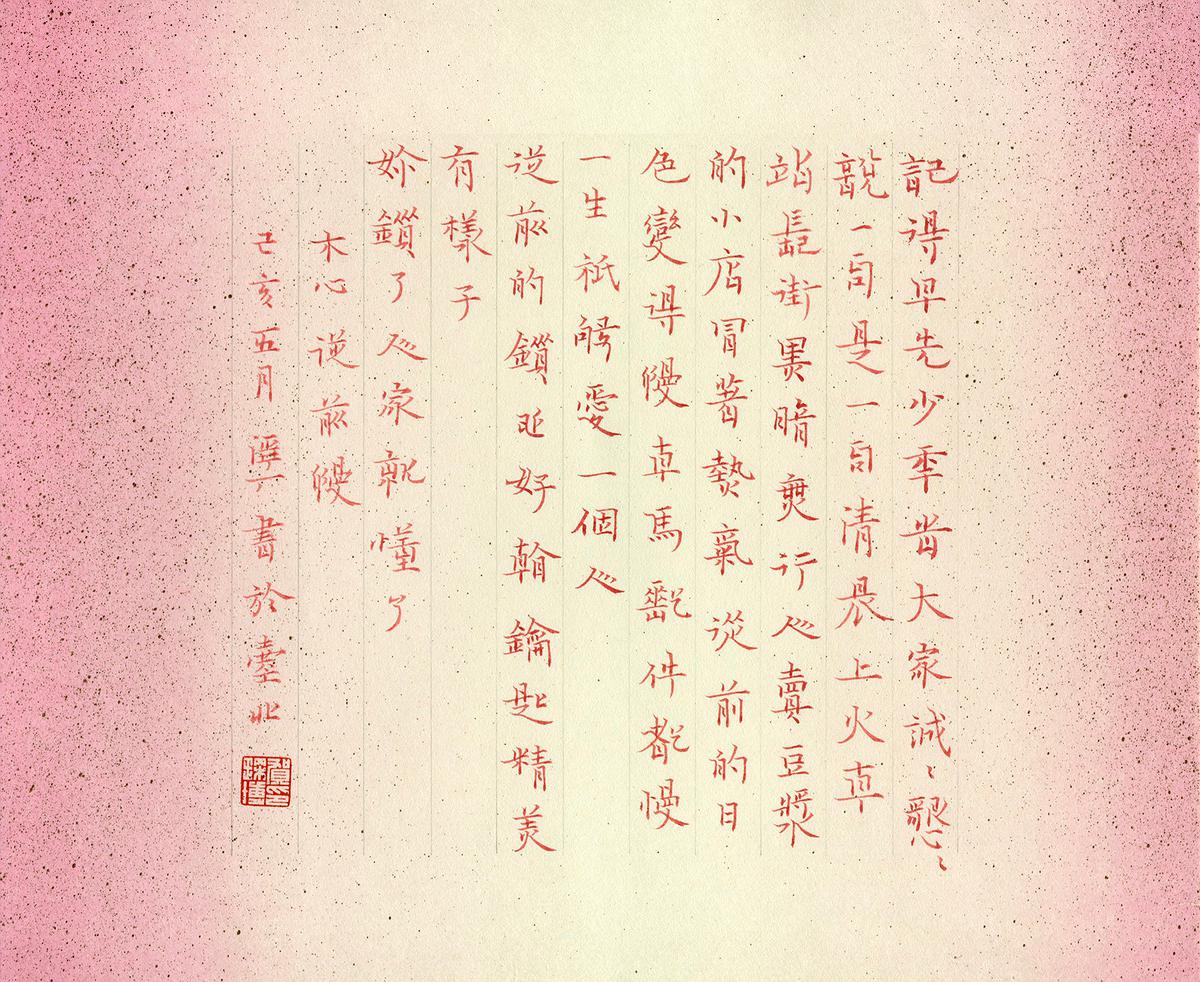 記得早先少年時大家誠〻懇〻
說一句是一句清晨上火車
站長街黑暗無行人賣豆漿
的小店冒著熱氣從前的日
色變得慢車馬郵件都慢
一生祇夠愛一個人
從前的鎖也好看鑰匙精美
有樣子
妳鎖了人家就懂了
木心 從前慢
己亥五月 書於臺北